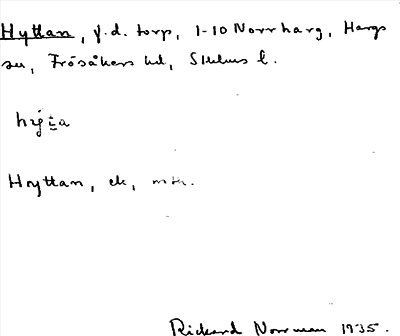 Hyttan, f.d. torp, 1-10 Norrharg, Hargs
sn, Frösåkers hd, Sthlms l.
hyt̲a
Hyttan, ek,
Rickard Norrman 1935.